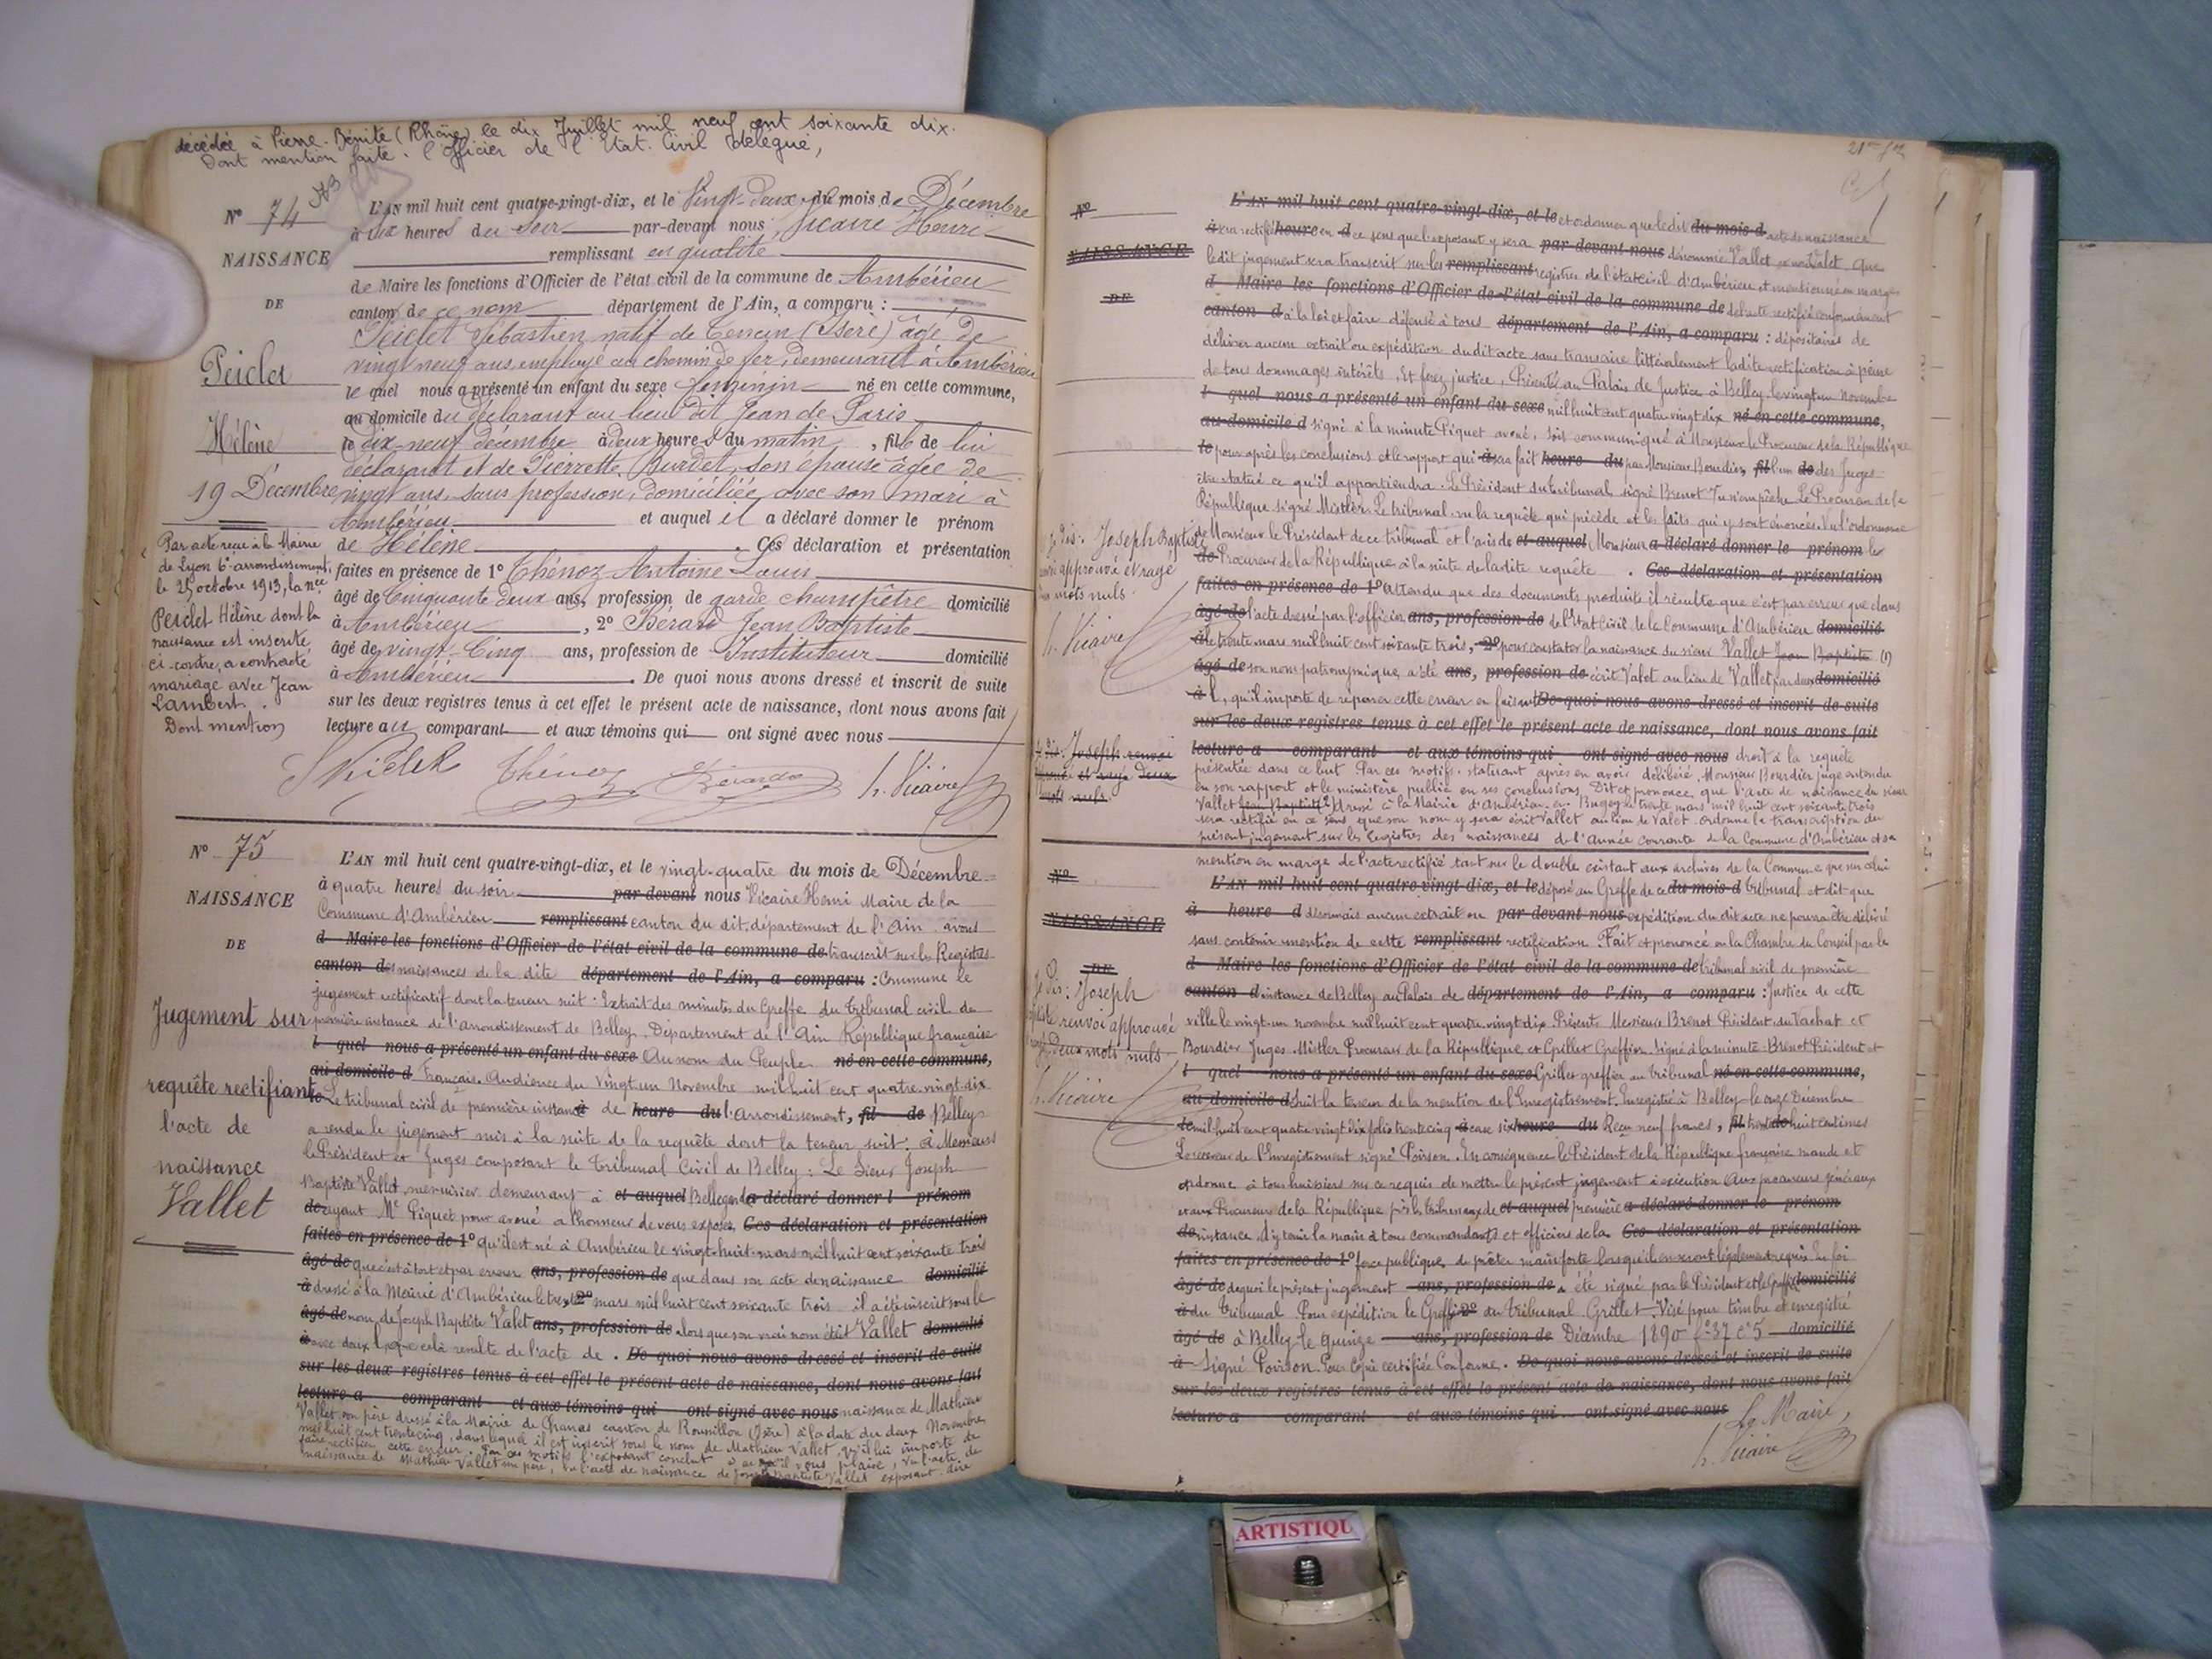 décédée à Pierre-Bénite (Rhône) le dix Juillet mil neuf cent soixante dix.
Dont mention faite. l'Officier de l'Etat-Civil délégué,
N° 74
NAISSANCE
DE
Peiclet
Hélène
19 Décembre
L'AN mil huit cent quatre-vingt-dix, et le Vingt-deux du mois de Décembre
à six heures du soir par-devant nous Vicaire Henri
remplissant en qualité
de Maire les fonctions d'Officier de l'état civil de la commune de Ambérieu
canton de ce nom département de l'Ain, a comparu :
Peiclet Sébastien natif de Tencin (Isère) âgé de
vingt neuf ans employé au chemin de fer, demeurant à Ambérieu
le quel nous a présenté un enfant du sexe féminin né en cette commune,
au domicile du déclarant au lieu dit Jean de Paris
le dix-neuf décembre à deux heures du matin, fille de lui
déclarant et de Pierrette Burdet, son épouse âgée de
vingt ans, sans profession, domiciliée avec son mari à
Ambérieu et auquel il a déclaré donner le prénom
de Hélène. Ces déclaration et présentation
faites en présence de 1° Thénoz Antoine Louis
âgé de Cinquante deux ans, profession de garde champêtre domicilié
à Ambérieu, 2° Bérard Jean Baptiste
âgé de vingt-Cinq ans, profession de Instituteur domicilié
à Ambérieu. De quoi nous avons dressé et inscrit de suite
sur les deux registres tenus à cet effet le présent acte de naissance, dont nous avons fait
lecture au comparant et aux témoins qui ont signé avec nous
Par acte reçu à la Mairie
de Lyon 6e arrondissement,
le 25 octobre 1913, la née
Peiclet Hélène dont la
naissance est inscrite
ci-contre, a contracté
mariage avec Jean
Lambert.
Dont mention
Thénoz Bérard h. Vicaire
N° 75
NAISSANCE
DE
Jugement sur
requête rectifiant
l'acte de
naissance
Vallet
L'AN mil huit cent quatre-vingt-dix, et le vingt-quatre du mois de Décembre
à quatre heures du soir par-devant nous Vicaire Henri Maire de la
Commune d'Ambérieu remplissant canton du dit, département de l'Ain avons
d Maire les fonctions d'Officier de l'état civil de la commune de transcrit sur les Registres
canton de naissances de la dite département de l'Ain, a comparu : Commune le
jugement rectificatif dont la teneur suit : Extrait des minutes du Greffe du Tribunal civil de
première instance de l'arrondissement de Belley. Département de l'Ain République française
l quel nous a présenté un enfant du sexe Au nom du Peuple né en cette commune,
au domicile d Français. Audience du Vingt-un Novembre mil huit cent quatre-vingt-dix
le Le tribunal civil de première instance à de heure du l'arrondissement, fil de Belley
a rendu le jugement mis à la suite de la requête dont la teneur suit : à Messieurs
le Président et Juges composant le Tribunal Civil de Belley : Le Sieur Joseph
Baptiste Vallet, menuisier demeurant à et auquel Bellegarde a déclaré donner l prénom
de ayant Me Piquet pour avoué a l'honneur de vous exposer Ces déclaration et présentation
faites en présence de 1° qu'il est né à Ambérieu le vingt-huit mars mil huit cent soixante trois
âgé de que c'est à tort et par erreur ans, profession de que dans son acte de naissance domicilié
à dressé à la Mairie d'Ambérieu le trente 2° mars mil huit cent soixante trois il a été inscrit sous le
âgé de nom de Joseph Baptiste Valet ans, profession de lors que son vrai nom était Vallet domicilié
à avec deux l que celà résulte de l'acte de. De quoi nous avons dressé et inscrit de suite
sur les deux registres tenus à cet effet le présent acte de naissance, dont nous avons fait
lecture a comparant et aux témoins qui ont signé avec nous naissance de Mathieu
Vallet son père dressé à la Mairie de Chanas canton de Roussillon (Isère) à la date du deux Novembre
mil huit cent trente cinq, dans lequel il est inscrit sous le nom de Mathieu Vallet, qu'il lui importe de
faire rectifier cette erreur. Par ces motifs l'exposant conclut à ce qu'il vous plaise, vu l'acte de
naissance de Mathieu Vallet son père, vu l'acte de naissance de Joseph Baptiste Vallet exposant, dire
N°
NAISSANCE
DE
L'AN mil huit cent quatre-vingt-dix, et le et ordonner que ledit du mois d acte de naissance
à sera rectifié heure en d ce sens que l'exposant y sera par-devant nous dénommé Vallet et non Valet. Que
ledit jugement sera transcrit sur les remplissant registres de l'état civil d'Ambérieu et mentionné en marge
d Maire les fonctions d'Officier de l'état civil de la commune de de l'acte rectifié conformément
canton d à la loi et faire défense à tous département de l'Ain, a comparu : dépositaires de
délivrer aucun extrait ou expédition dudit acte sans transcrire littéralement ladite rectification à peine
de tous dommages intérêts. Et ferez justice, Présenté au Palais de Justice à Belley le vingt un Novembre
l quel nous a présenté un enfant du sexe mil huit cent quatre vingt dix né en cette commune,
au domicile d signé à la minute Piquet avoué, Soit communiqué à Monsieur le Procureur de la République
le pour après les conclusions et le rapport qui à sera fait heure du par Monsieur Bourdier, fil l'un de des Juges
être statué ce qu'il appartiendra. Le Président du tribunal signé Brenot Vu n'empêche Le Procureur de la
République signé Mistler. Le tribunal vu la requête qui précède et les faits qui y sont énoncés. Vu l'ordonnance
de Monsieur le Président de ce tribunal et l'avis de et auquel Monsieur a déclaré donner le prénom le
de Procureur de la République à la suite de ladite requête. Ces déclaration et présentation
faites en présence de 1° attendu que des documents produits il résulte que c'est par erreur que dans
âgé de l'acte dressé par l'officier ans, profession de de l'Etat Civil de la Commune d'Ambérieu domicilié
à le trente mars mil huit cent soixante trois, 2° pour constater la naissance du sieur Vallet Jean Baptiste (1)
âgé de son nom patronymique a été ans, profession de écrit Valet au lieu de Vallet par deux domicilié
à l, qu'il importe de réparer cette erreur en faisant De quoi nous avons dressé et inscrit de suite
sur les deux registres tenus à cet effet le présent acte de naissance, dont nous avons fait
lecture a comparant et aux témoins qui ont signé avec nous droit à la requête
présentée dans ce but Par ces motifs, statuant après en avoir délibéré, Monsieur Bourdier juge entendu
en son rapport et le ministère public en ses conclusions, Dit et prononce que l'acte de naissance du sieur
Vallet Jean Baptiste dressé à la Mairie d'Ambérieu en Bugey le trente mars mil huit cent soixante trois
sera rectifié en ce sens que son nom y sera écrit Vallet au lieu de Valet. Ordonne la transcription du
présent jugement sur les Registres des naissances de l'Année courante de la Commune d'Ambérieu et sa
mention en marge de l'acte rectifié tant sur le double existant aux archives de la Commune que sur celui
Je dis : Joseph Baptiste
renvoi approuvé et rayé
mots nuls.
h. Vicaire
N°
NAISSANCE
DE
L'AN mil huit cent quatre-vingt-dix, et le déposé au Greffe de ce du mois d tribunal et dit que
à heure d désormais aucun extrait ou par-devant nous expédition du dit acte ne pourra être délivré
sans contenir mention de cette remplissant rectification. Fait et prononcé en la Chambre du Conseil par le
d Maire les fonctions d'Officier de l'état civil de la commune de tribunal civil de première
canton d instance de Belley au Palais de département de l'Ain, a comparu : Justice de cette
ville le vingt-un novembre mil huit cent quatre vingt dix. Présents Messieurs Brenot Président, du Vachat et
Bourdier Juges. Mistler Procureur de la République et Grillet Greffier. Signé à la minute : Brenot Président et
l quel nous a présenté un enfant du sexe Grillet greffier au tribunal né en cette commune,
au domicile d Suit la teneur de la mention de l'Enregistrement. Enregistré à Belley le onze Décembre
le mil huit cent quatre vingt dix folio trente cinq à case six heure du Reçu neuf francs, fil trente de huit centimes
Le receveur de l'Enregistrement signé Poirson. En conséquence le Président de la République française mande et
ordonne à tous huissiers sur ce requis de mettre le présent jugement à exécution Aux procureurs généraux
et aux Procureurs de la République près les tribunaux de et auquel première a déclaré donner le prénom
de instance d'y tenir la main à tous commandants et officiers de la Ces déclaration et présentation
faites en présence de 1° force publique, de prêter main forte lorsqu'ils en seront légalement requis. En foi
âgé de de quoi le présent jugement ans, profession de a été signé par le Président et le Greffier domicilié
à du Tribunal Pour expédition le Greffier 2° du Tribunal Grillet. Visé pour timbre et enregistré
âgé de à Belley le quinze ans, profession de Décembre 1890 f° 37 c° 5 domicilié
à Signé Poirson. Pour Copie certifiée Conforme. De quoi nous avons dressé et inscrit de suite
sur les deux registres tenus à cet effet le présent acte de naissance, dont nous avons fait
lecture a comparant et aux témoins qui ont signé avec nous
Le Maire,
h. Vicaire
Je dis : Joseph
renvoi approuvé
deux mots nuls
h. Vicaire
ARTISTIQU